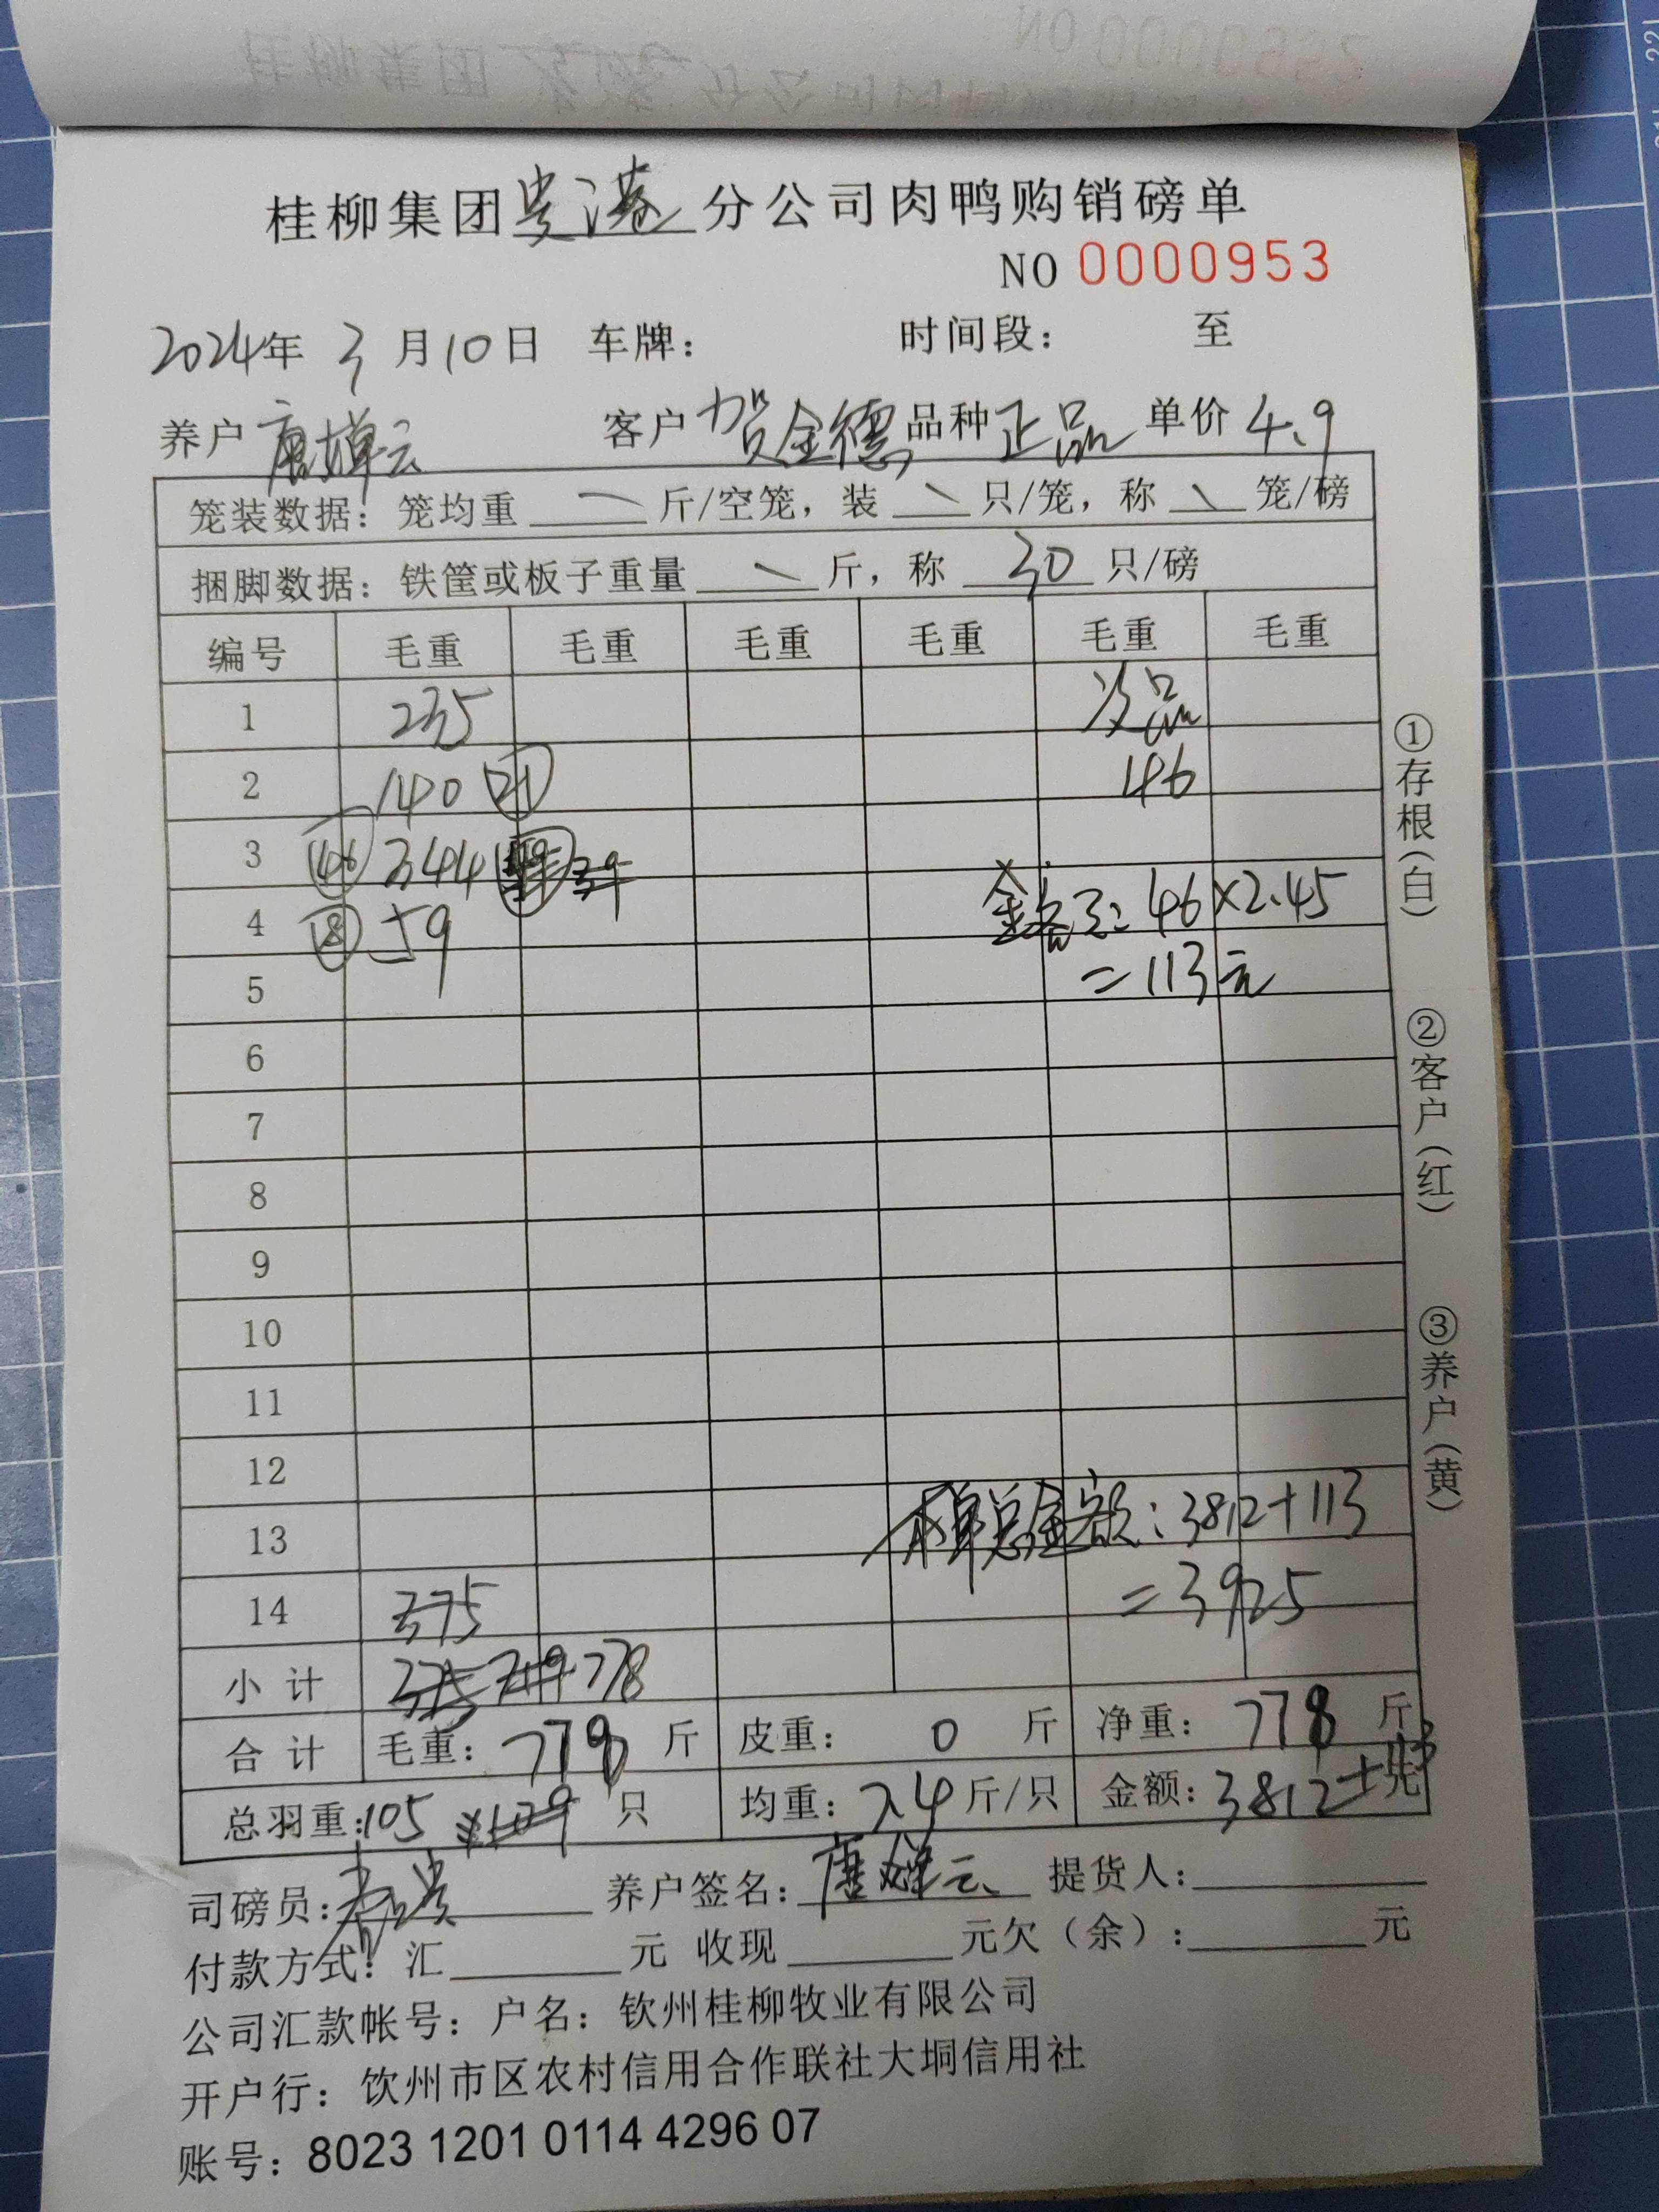 桂柳集团贵港分公司肉鸭购销磅单
NO 0000953
2024年 3月10日 车牌： 时间段： 至
养户 唐婵云 客户 贺金德 品种 正品 单价 4.9
笼装数据：笼均重 斤/空笼，装 只/笼，称 笼/磅
捆脚数据：铁筐或板子重量 斤，称 30 只/磅
编号 毛重 毛重 毛重 毛重 毛重 毛重
1 235 次品
2 140 21 46
3 344
4 18 59 金额：46×2.45
5 =113元
6
7
8
9
10
11
12
13 本单总金额：3812+113
14 375 =3925
小计 375 719 778
合计 毛重：778 斤 皮重：0 斤 净重：778 斤
总羽重：105 只 均重：7.4 斤/只 金额：3812 元
司磅员： 养户签名：唐婵云 提货人：
付款方式：汇 元 收现 元欠（余）： 元
公司汇款帐号：户名：钦州桂柳牧业有限公司
开户行：钦州市区农村信用合作联社大垌信用社
账号：8023 1201 0114 4296 07
①存根（白）
②客户（红）
③养户（黄）